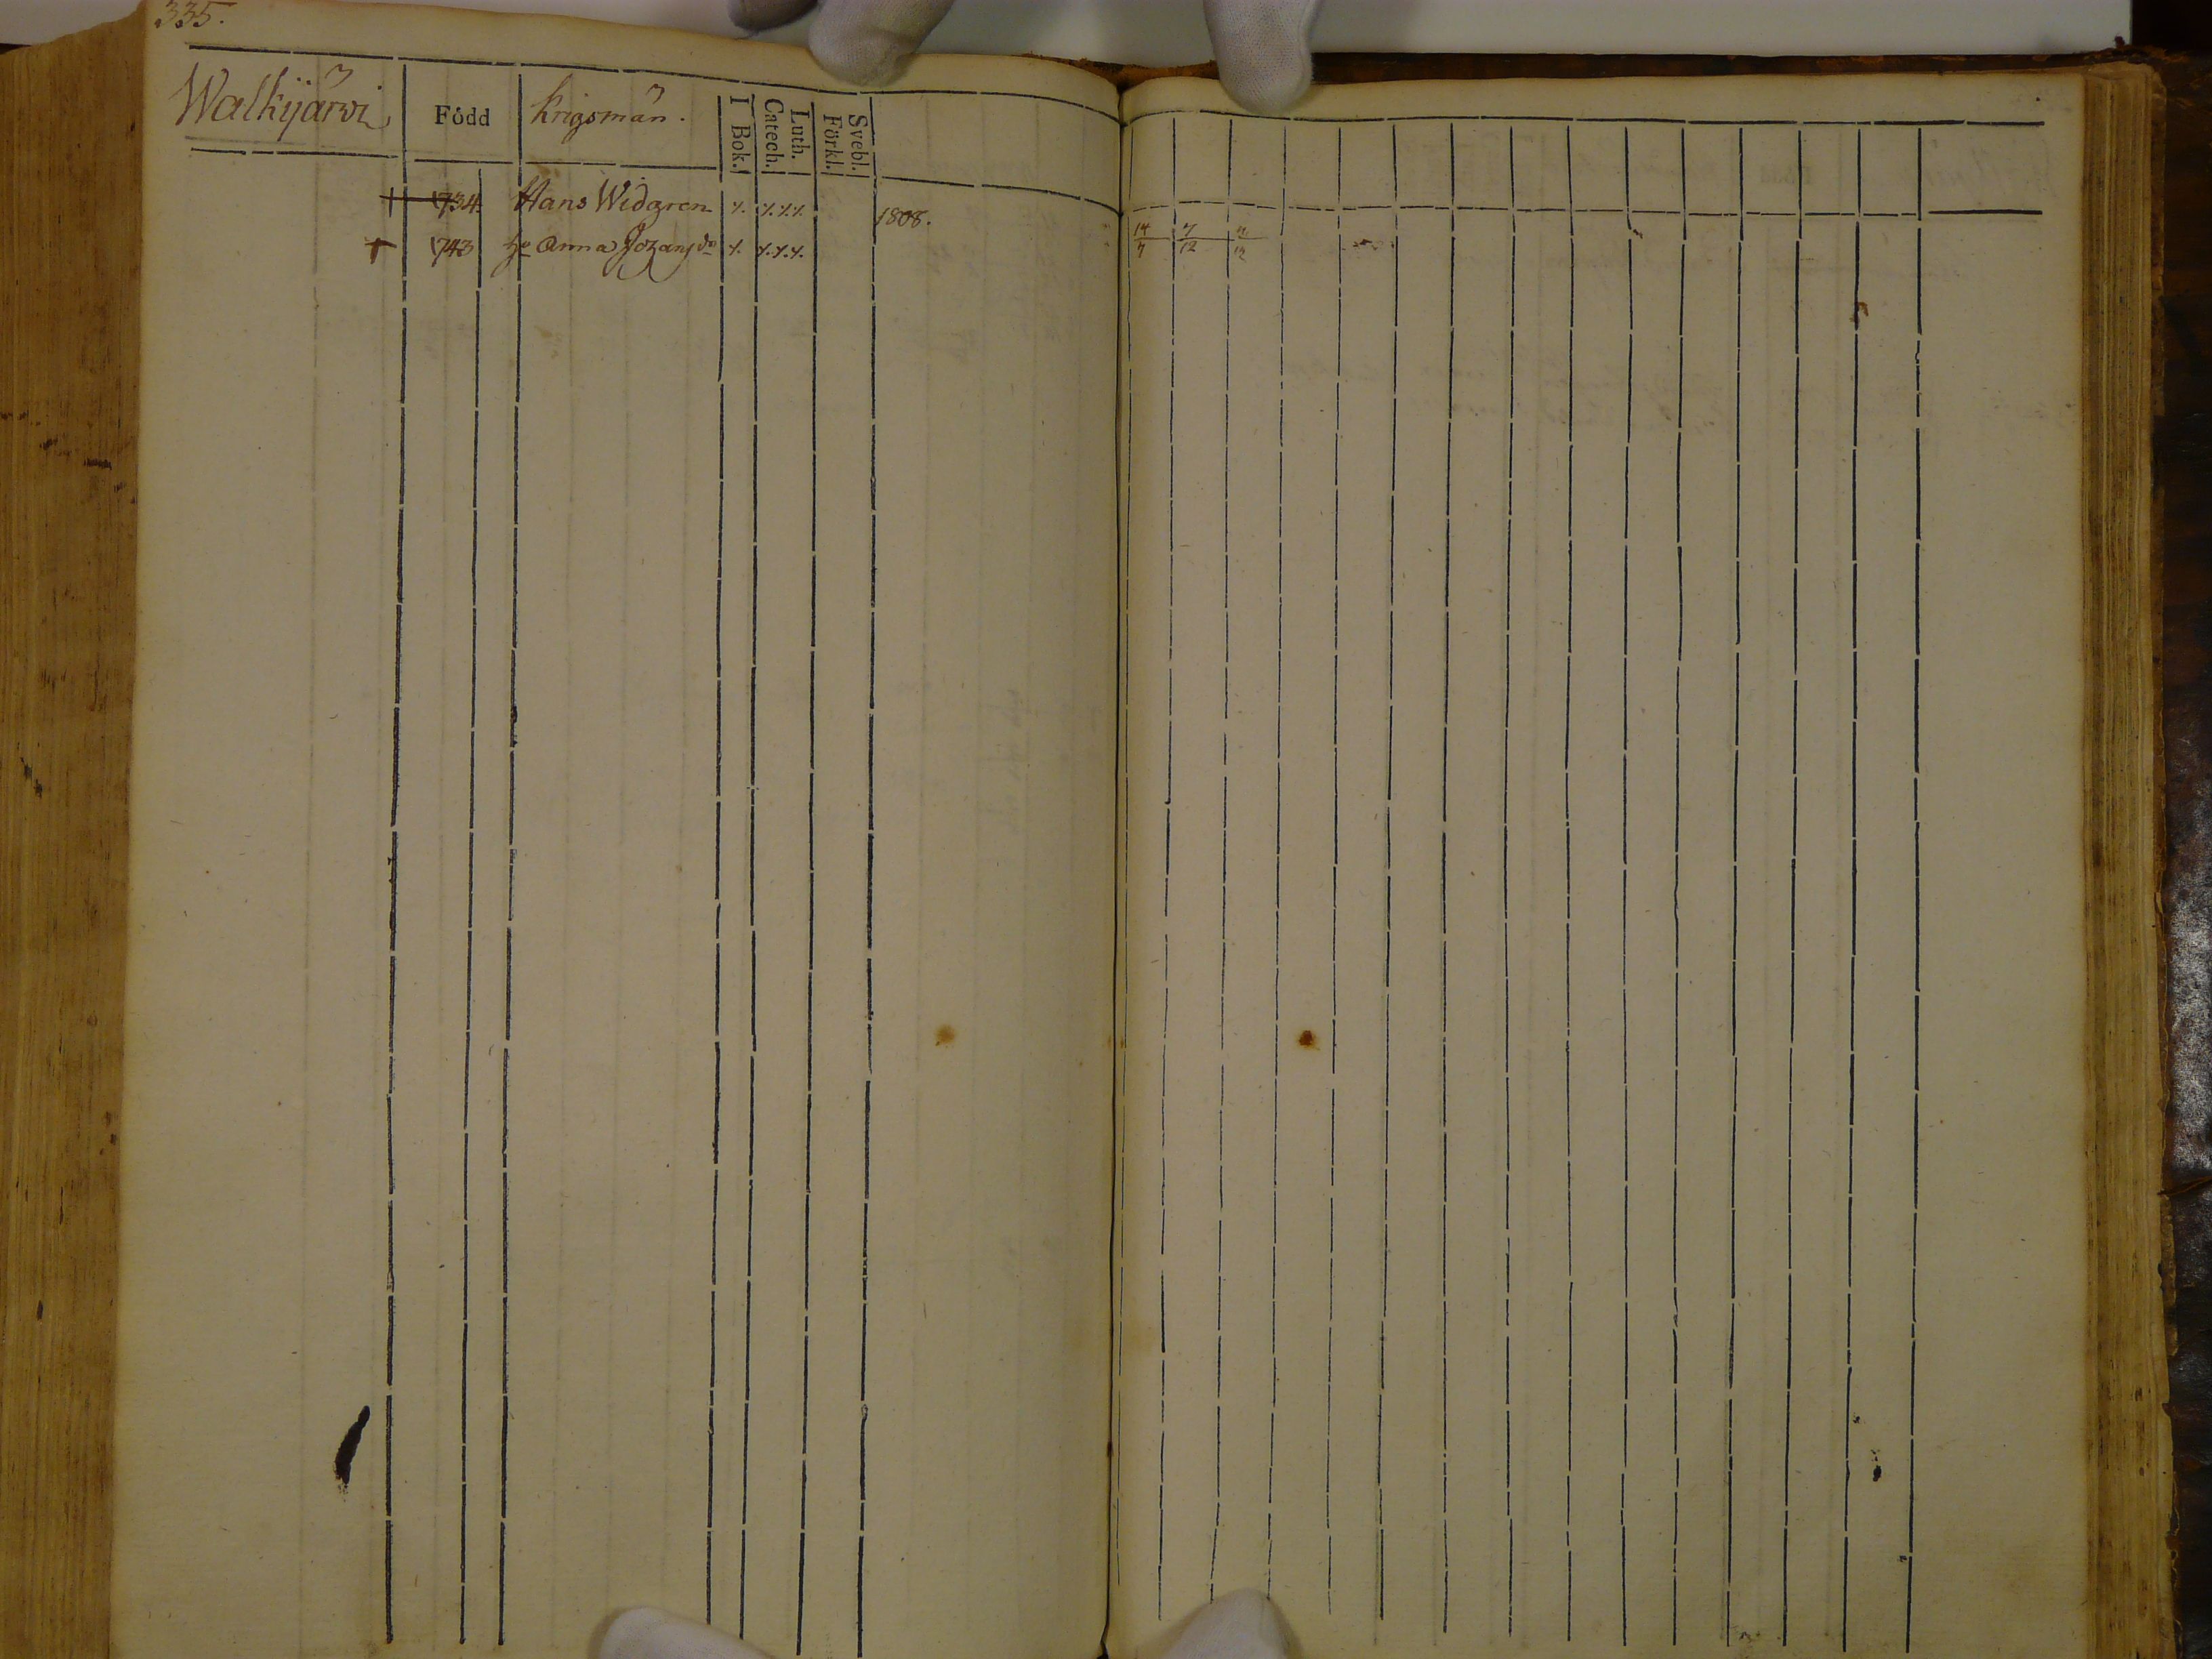 335.
Walkijärwi Född Krigsmän. I Bok. Luth. Catech. Svebl. Förkl.
† 734. Hans Widgren
1808.
† 743 Hu Anna Johansdr 14/7 7/12